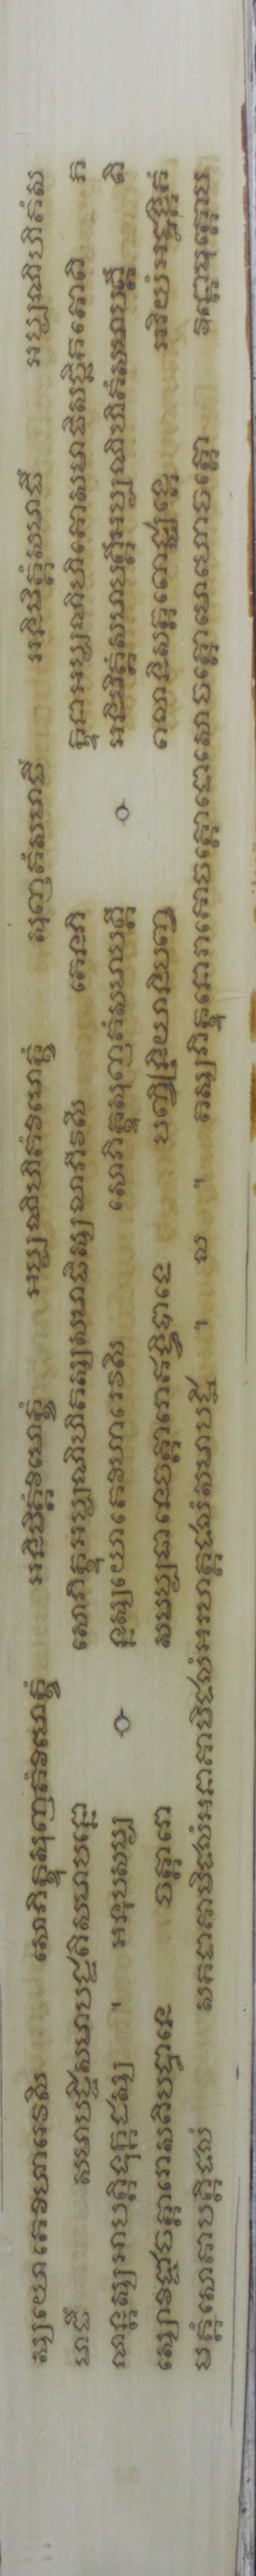 ស្សយោតេវិហារេវសិ សោភិក្ខុសុញតំវិមោក្ខំ អនិមិត្តំវិមោក្ខំ អប្បណិហិតំវិមោក្ខំ សុញតំសមាធិំ អនិមិត្តំសមាធិំ អប្បណិហិតំស
មាធិំ សមាបជ្ជិសមាបជ្ជតិសមាបន្នោ សោភិក្ខុអប្បណិហិតស្សសមាធិស្សលាភីវសី តេនភិ ក្ខុនាអប្បណិហិតោសមាធិសច្ឆិកតោតិ ភ
ណន្តស្សអាបត្តិទុក្កដស្ស ។ អនុបសម្ប ន្នស្សយោតេវិហារេវសិ សោភិក្ខុសុញតំសមាបត្តិំ អនិមិត្តំសមាបត្តិំអប្បណិហិតំសមាបត្តិំ តិ
ស្សោវិជ្ជាចត្តារោសតិបដ្ឋានេ ចត្តារោ សម្មប្បធានេចត្តារោឥទ្ធិបាទេ បញ្ចិន្ទ្រិយានិបញ្ច ពលានិសត្តពោជ្ឈង្គេ អរិយំអដ្ឋង្គិកំ
មគ្គំសោតាបត្តិផលំ សកទាគាមិផលំអនាគាមិផលំអរហត្តផលំសមាបជ្ជិ ។ ល ។ តស្សភិក្ខុនោរាគោចត្តោទោសោចត្តោមោហោចត្តោ វន្តោមុត្តោប